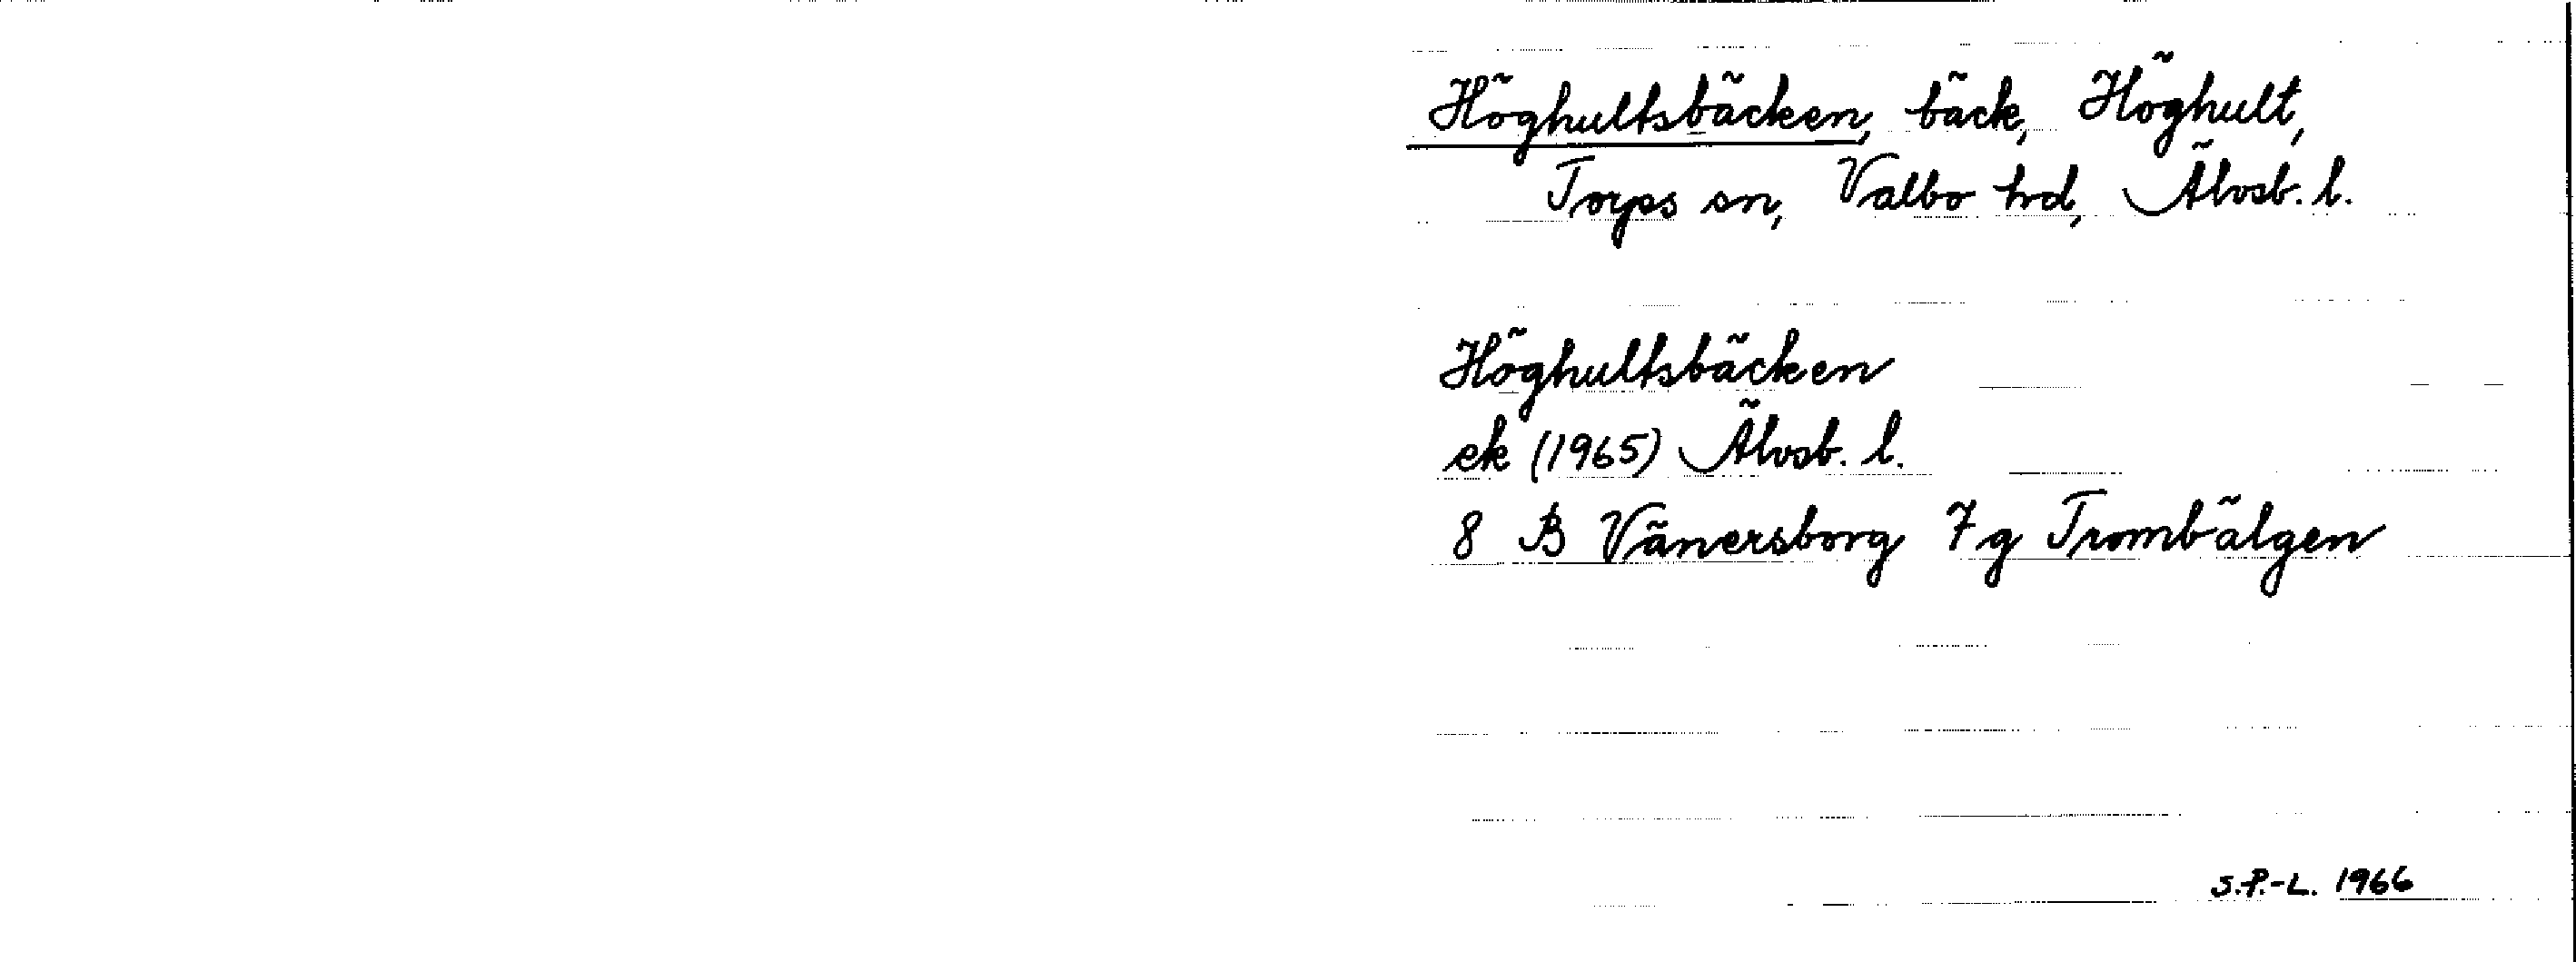 Höghultsbäcken, bäck, Höghult,
Torps sn, Valbo hd, Älvsb. l.
Höghultsbäcken
ek (1965) Älvsb. l.
8 B Vänersborg 7 g Trombälgen
S.P.-L. 1966